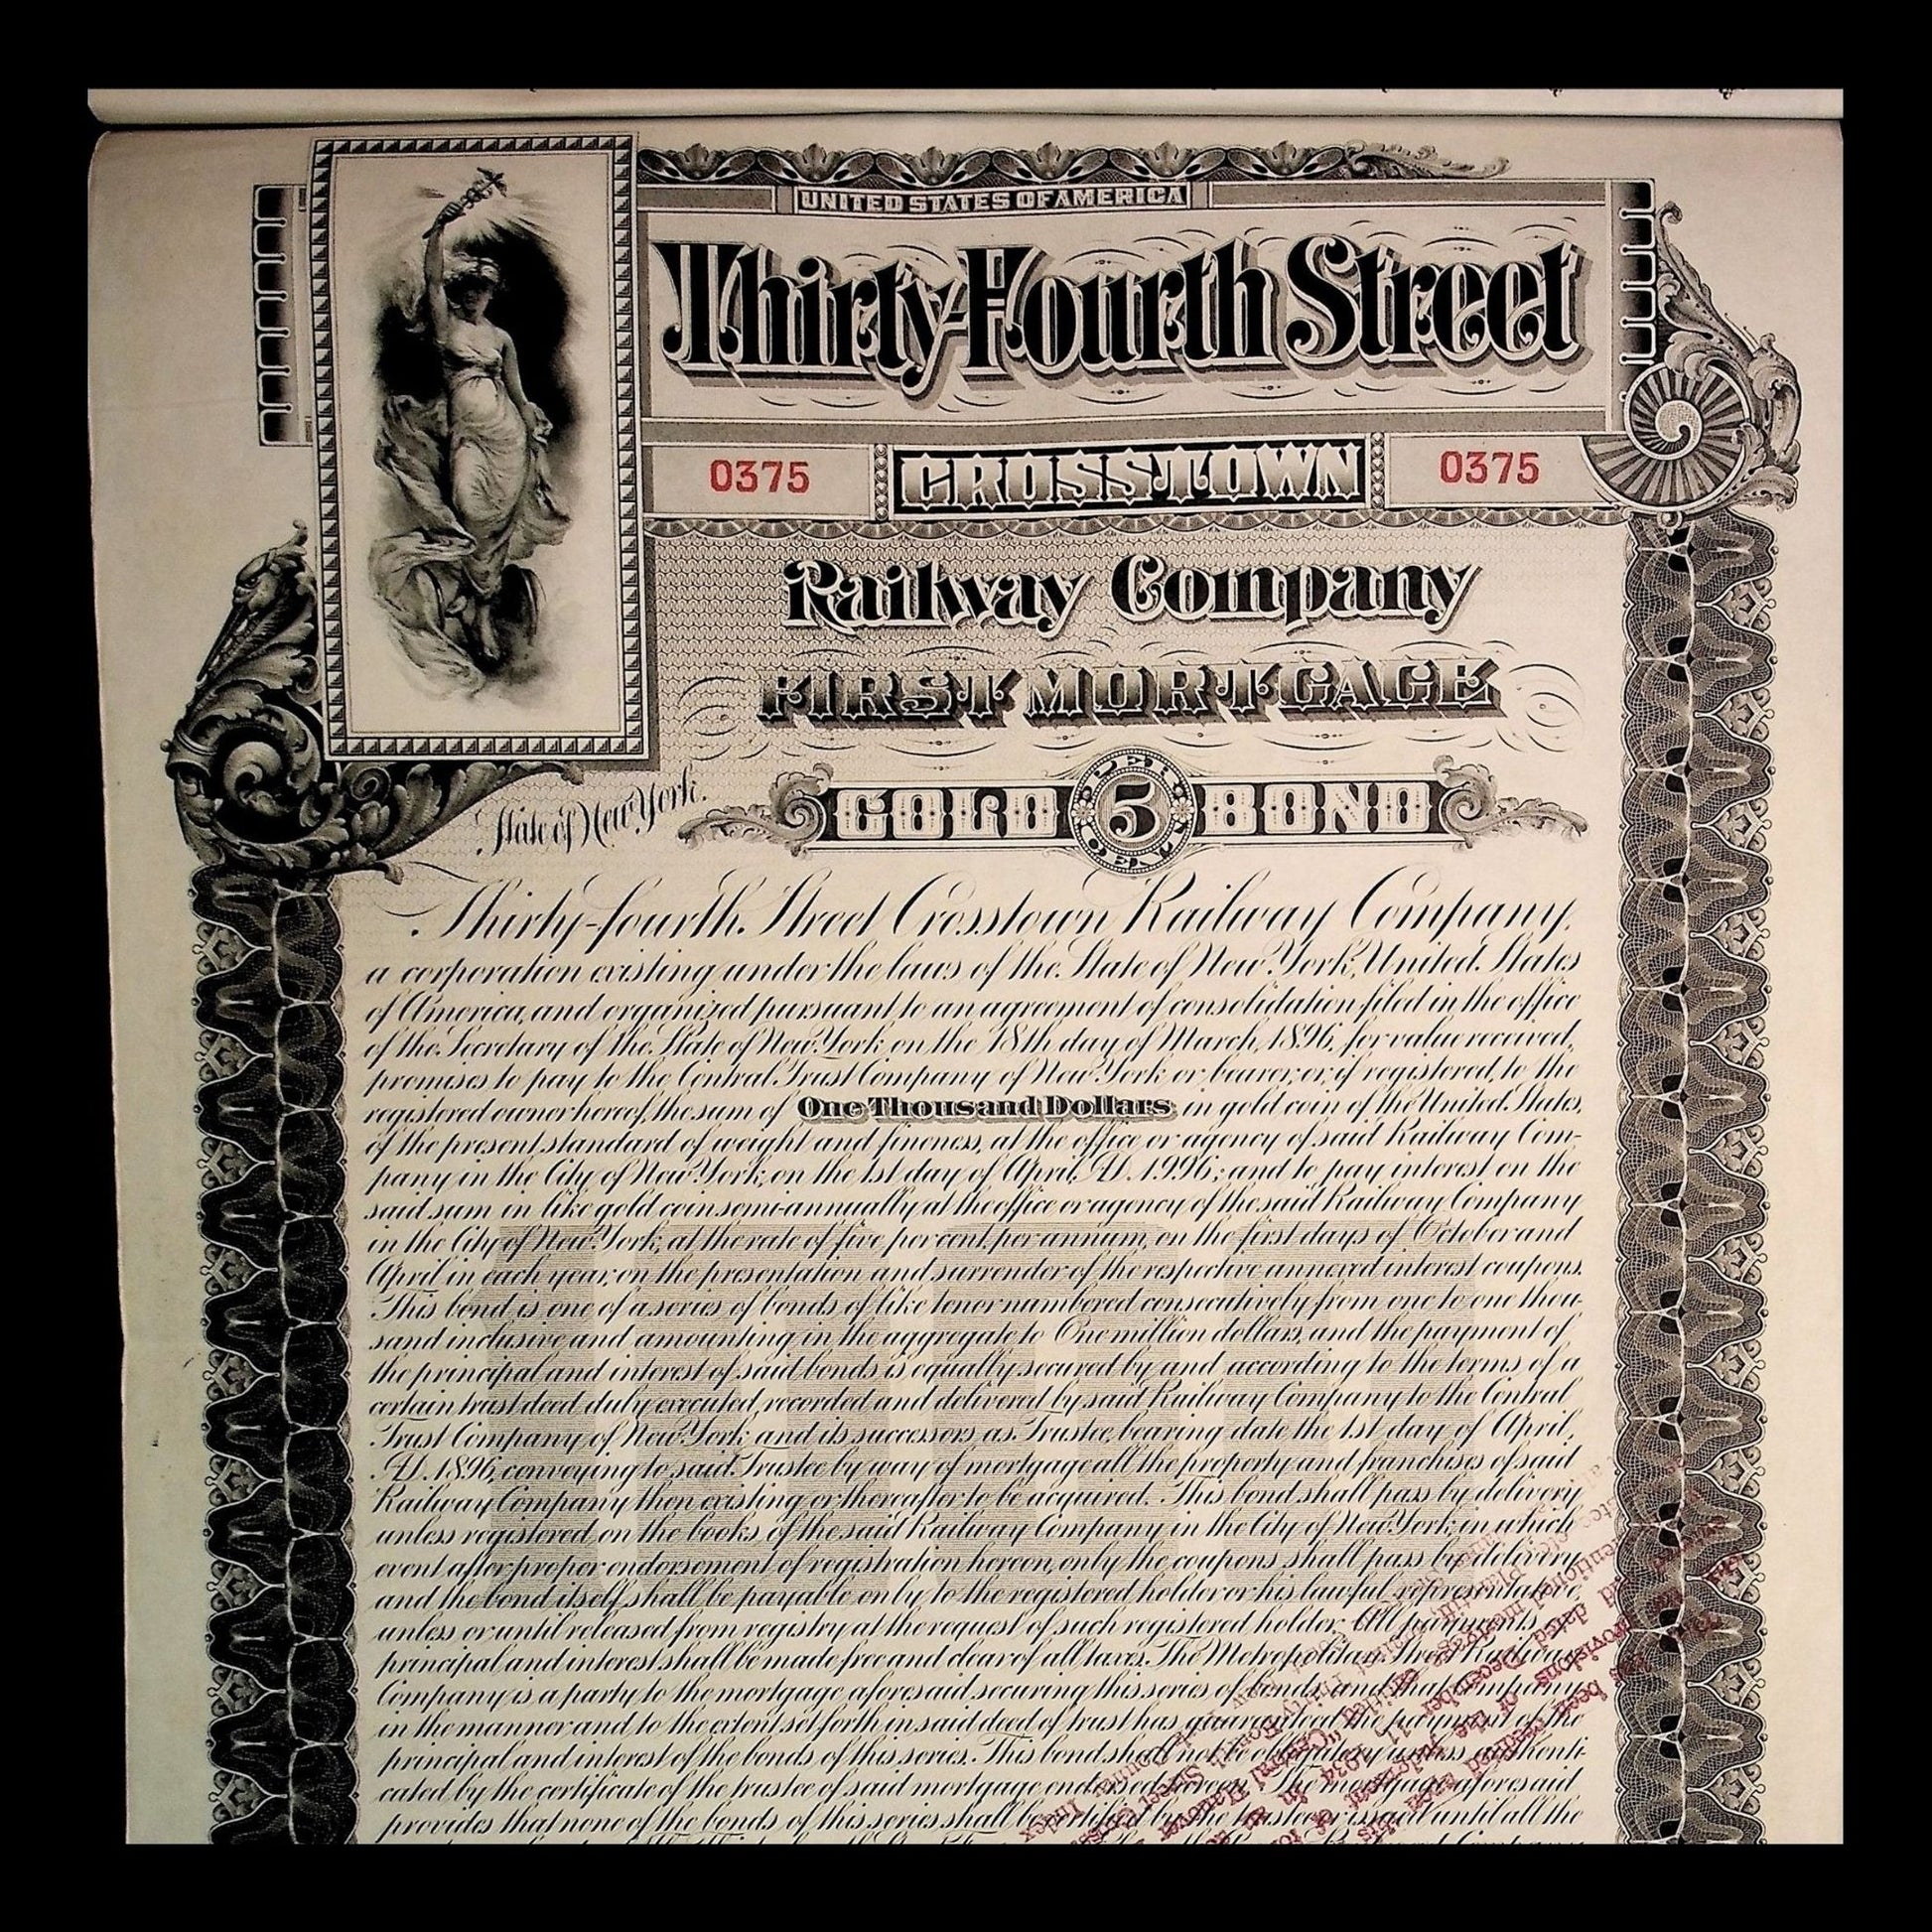 UNITED STATES OF AMERICA
Thirty-Fourth Street
0375 CROSSTOWN 0375
Railway Company
FIRST MORTGAGE
State of New York.
GOLD PER 5 CENT BOND
Thirty-fourth Street Crosstown Railway Company,
a corporation existing under the laws of the State of New York, United States
of America, and organized pursuant to an agreement of consolidation filed in the office
of the Secretary of the State of New York on the 18th day of March, 1896, for value received,
promises to pay to the Central Trust Company of New York or bearer, or, if registered, to the
registered owner hereof, the sum of One Thousand Dollars in gold coin of the United States,
of the present standard of weight and fineness, at the office or agency of said Railway Com-
pany in the City of New York, on the 1st day of April, A.D. 1996; and to pay interest on the
said sum in like gold coin semi-annually at the office or agency of the said Railway Company
in the City of New York, at the rate of five per cent. per annum, on the first days of October and
April in each year, on the presentation and surrender of the respective annexed interest coupons.
This bond is one of a series of bonds of like tenor numbered consecutively from one to one thou-
sand inclusive and amounting in the aggregate to One million dollars, and the payment of
the principal and interest of said bonds is equally secured by and according to the terms of a
certain trust deed duly executed, recorded and delivered by said Railway Company to the Central
Trust Company of New York and its successors as Trustee, bearing date the 1st day of April,
A.D. 1896, conveying to said Trustee by way of mortgage all the property and franchises of said
Railway Company then existing or thereafter to be acquired. This bond shall pass by delivery
unless registered on the books of the said Railway Company in the City of New York, in which
event after proper endorsement of registration hereon, only the coupons shall pass by delivery
and the bond itself shall be payable only to the registered holder or his lawful representative,
unless or until released from registry at the request of such registered holder. All payments
principal and interest shall be made free and clear of all taxes. The Metropolitan Street Railway
Company is a party to the mortgage aforesaid securing this series of bonds and that Company
in the manner and to the extent set forth in said deed of trust has guaranteed the payment of the
principal and interest of the bonds of this series. This bond shall not be obligatory unless authenti-
cated by the certificate of the trustee of said mortgage endorsed hereon. The mortgage aforesaid
provides that none of the bonds of this series shall be certified by the trustee or issued until all the